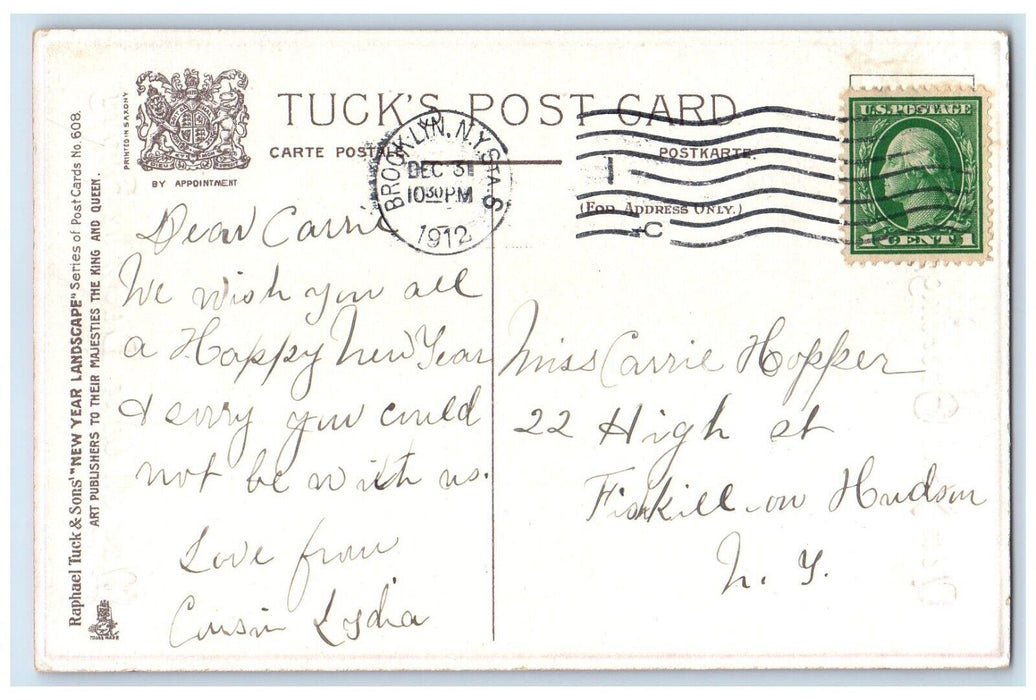 Raphael Tuck & Sons' "NEW YEAR LANDSCAPE" Series of Post Cards No. 608.
ART PUBLISHERS TO THEIR MAJESTIES THE KING AND QUEEN.
PRINTED IN SAXONY
BY APPOINTMENT
TUCK'S POST CARD
CARTE POSTALE
POSTKARTE.
(FOR ADDRESS ONLY.)
BROOKLYN, N.Y. STA. S
DEC 31
10 30 PM
1912
1
C
U.S. POSTAGE
1 CENT 1
Dear Carrie
We wish you all
a Happy New Year
& sorry you could
not be with us.
Love from
Cousin Lydia
Miss Carrie Hopper
22 High st
Fishkill-on Hudson
N. Y.